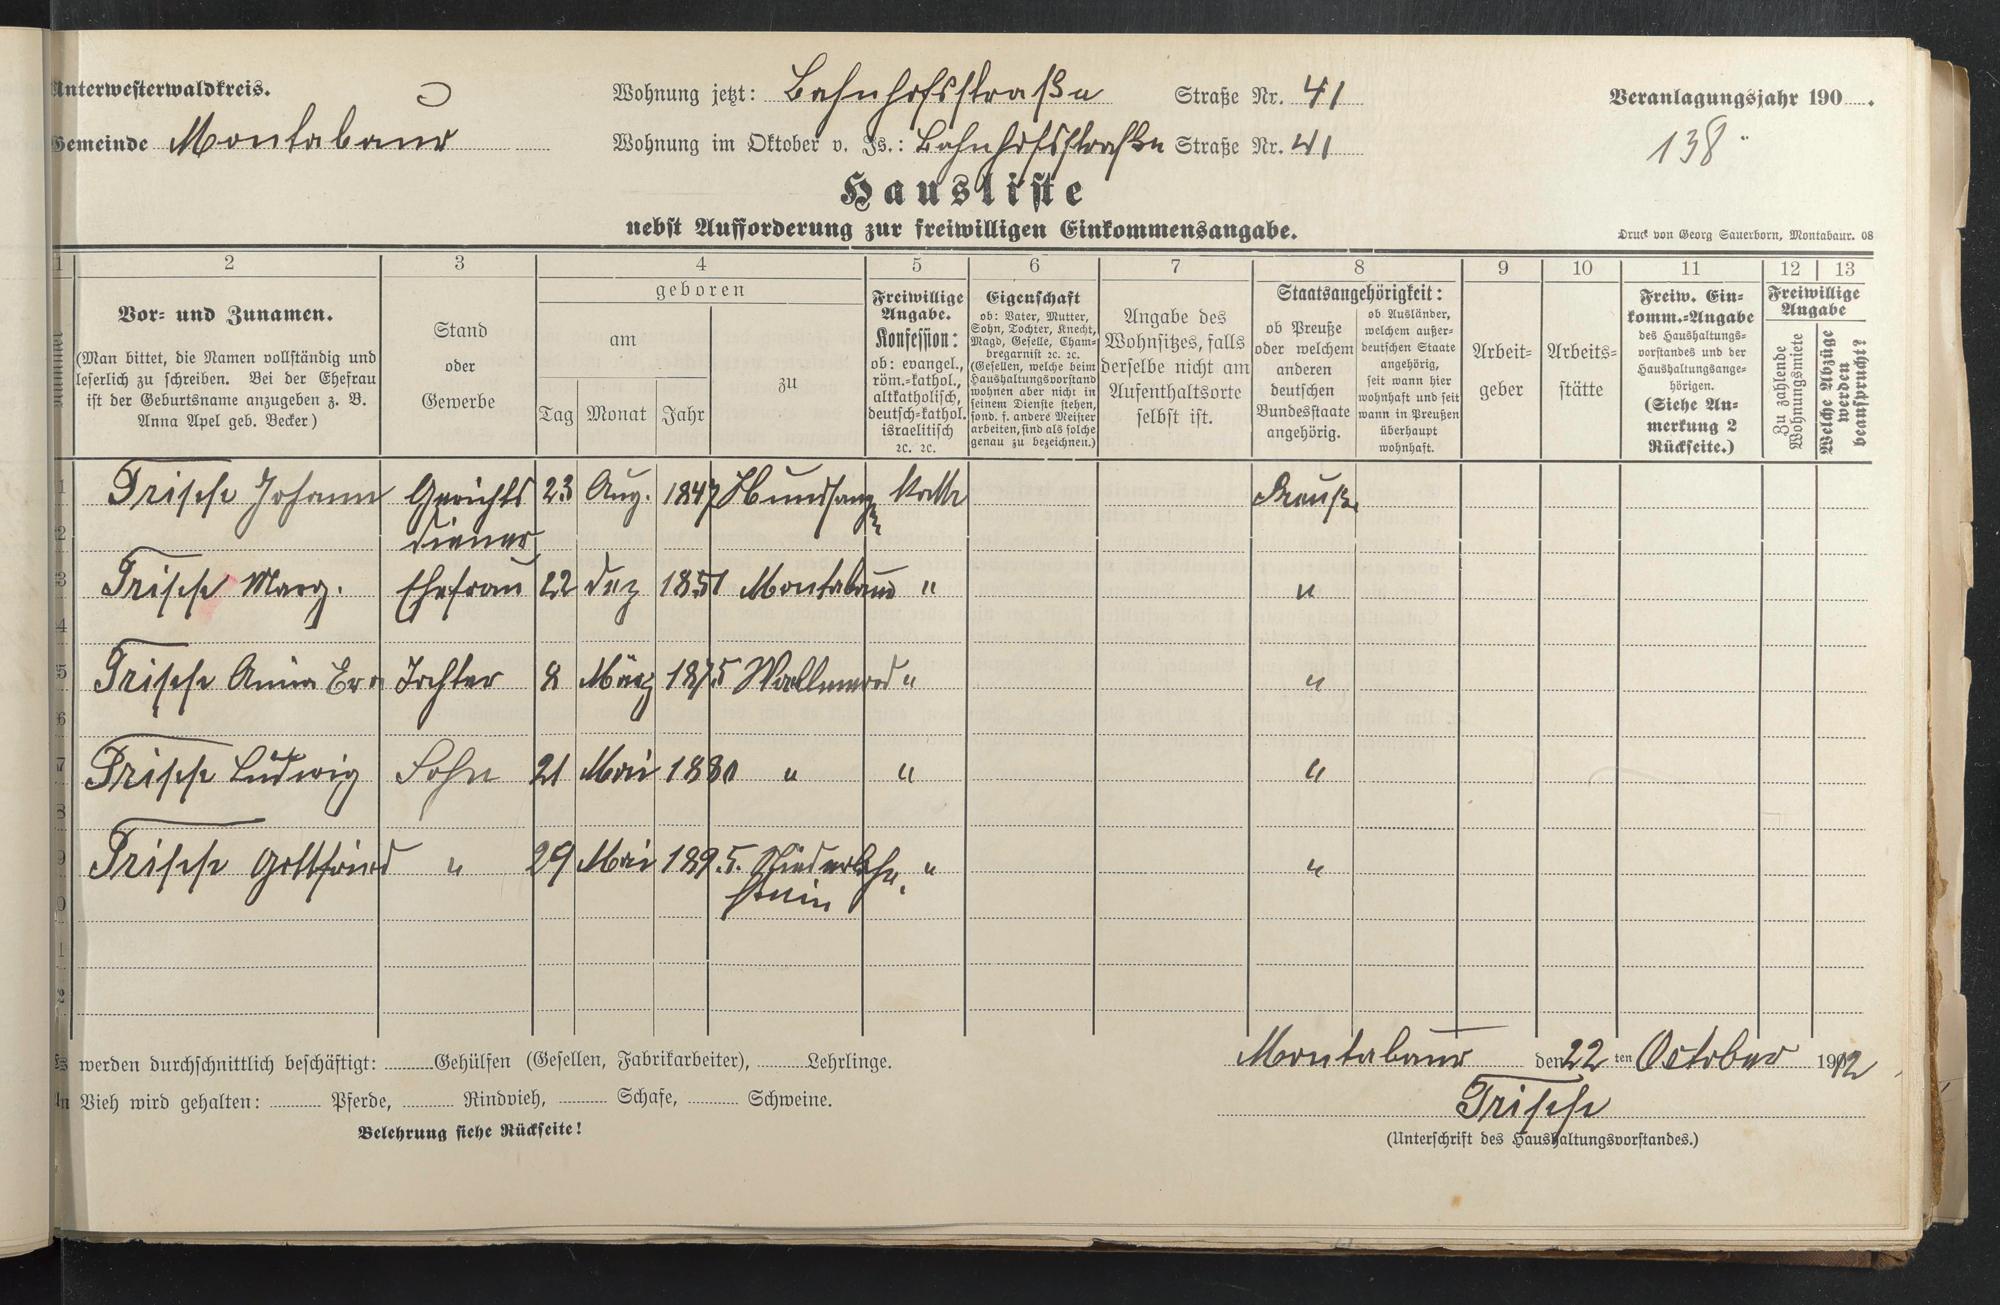 Unterwesterwaldkreis.
Gemeinde Montabaur
Wohnung jetzt: Bahnhofsstraße Straße Nr. 41
Wohnung im Oktober v. Js.: Bahnhofsstraße Straße Nr. 41
Veranlagungsjahr 190 .
138
Hausliste
nebst Aufforderung zur freiwilligen Einkommensangabe.
Druck von Georg Sauerborn, Montabaur. 08
1 2 3 4 5 6 7 8 9 10 11 12 13
Vor- und Zunamen.
(Man bittet, die Namen vollständig und
leserlich zu schreiben. Bei der Ehefrau
ist der Geburtsname anzugeben z. B.
Anna Apel geb. Becker)
Stand
oder
Gewerbe
geboren
am
Tag Monat Jahr
zu
Freiwillige
Angabe.
Konfession:
ob: evangel.,
röm.-kathol.,
altkatholisch,
deutsch-kathol.
israelitisch
ꝛc. ꝛc.
Eigenschaft
ob: Vater, Mutter,
Sohn, Tochter, Knecht,
Magd, Geselle, Cham-
bregarnist ꝛc. ꝛc.
(Gesellen, welche beim
Haushaltungsvorstand
wohnen aber nicht in
seinem Dienste stehen,
sond. f. andere Meister
arbeiten, sind als solche
genau zu bezeichnen.)
Angabe des
Wohnsitzes, falls
derselbe nicht am
Aufenthaltsorte
selbst ist.
Staatsangehörigkeit:
ob Preuße
oder welchem
anderen
deutschen
Bundesstaate
angehörig.
ob Ausländer,
welchem außer-
deutschen Staate
angehörig,
seit wann hier
wohnhaft und seit
wann in Preußen
überhaupt
wohnhaft.
Arbeit-
geber
Arbeits-
stätte
Freiw. Ein-
komm.-Angabe
des Haushaltungs-
vorstandes und der
Haushaltungsange-
hörigen.
(Siehe An-
merkung 2
Rückseite.)
Freiwillige
Angabe
Zu zahlende
Wohnungsmiete
Welche Abzüge
werden
beansprucht?
1 Frisch Johann Gerichts 23 Aug. 1847 Hundsangen kath Preuße
2 diener
3 Frisch Marg. Ehefrau 22 Dez 1851 Montabaur " "
4
5 Frisch Anna Eva Tochter 8 März 1875 Wallmerod " "
6
7 Frisch Ludwig Sohn 21 Mai 1880 " " "
8
9 Frisch Gottfried " 29 Mai 1895. Niederlahn- " "
0 stein
1
2
Es werden durchschnittlich beschäftigt: Gehülfen (Gesellen, Fabrikarbeiter), Lehrlinge.
An Vieh wird gehalten: Pferde, Rindvieh, Schafe, Schweine.
Belehrung siehe Rückseite!
Montabaur den 22 ten October 1912
Frisch
(Unterschrift des Haushaltungsvorstandes.)